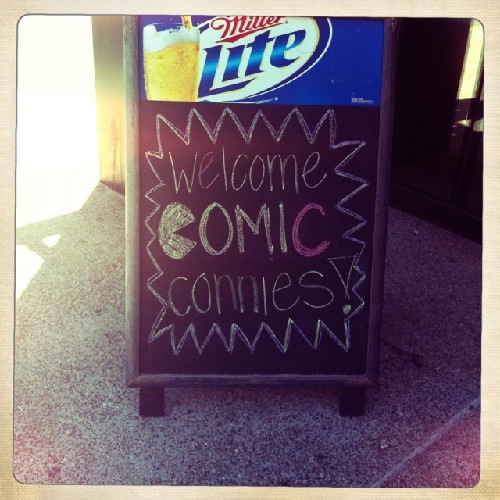 Miller
Lite
Welcome
COMIC
connies!